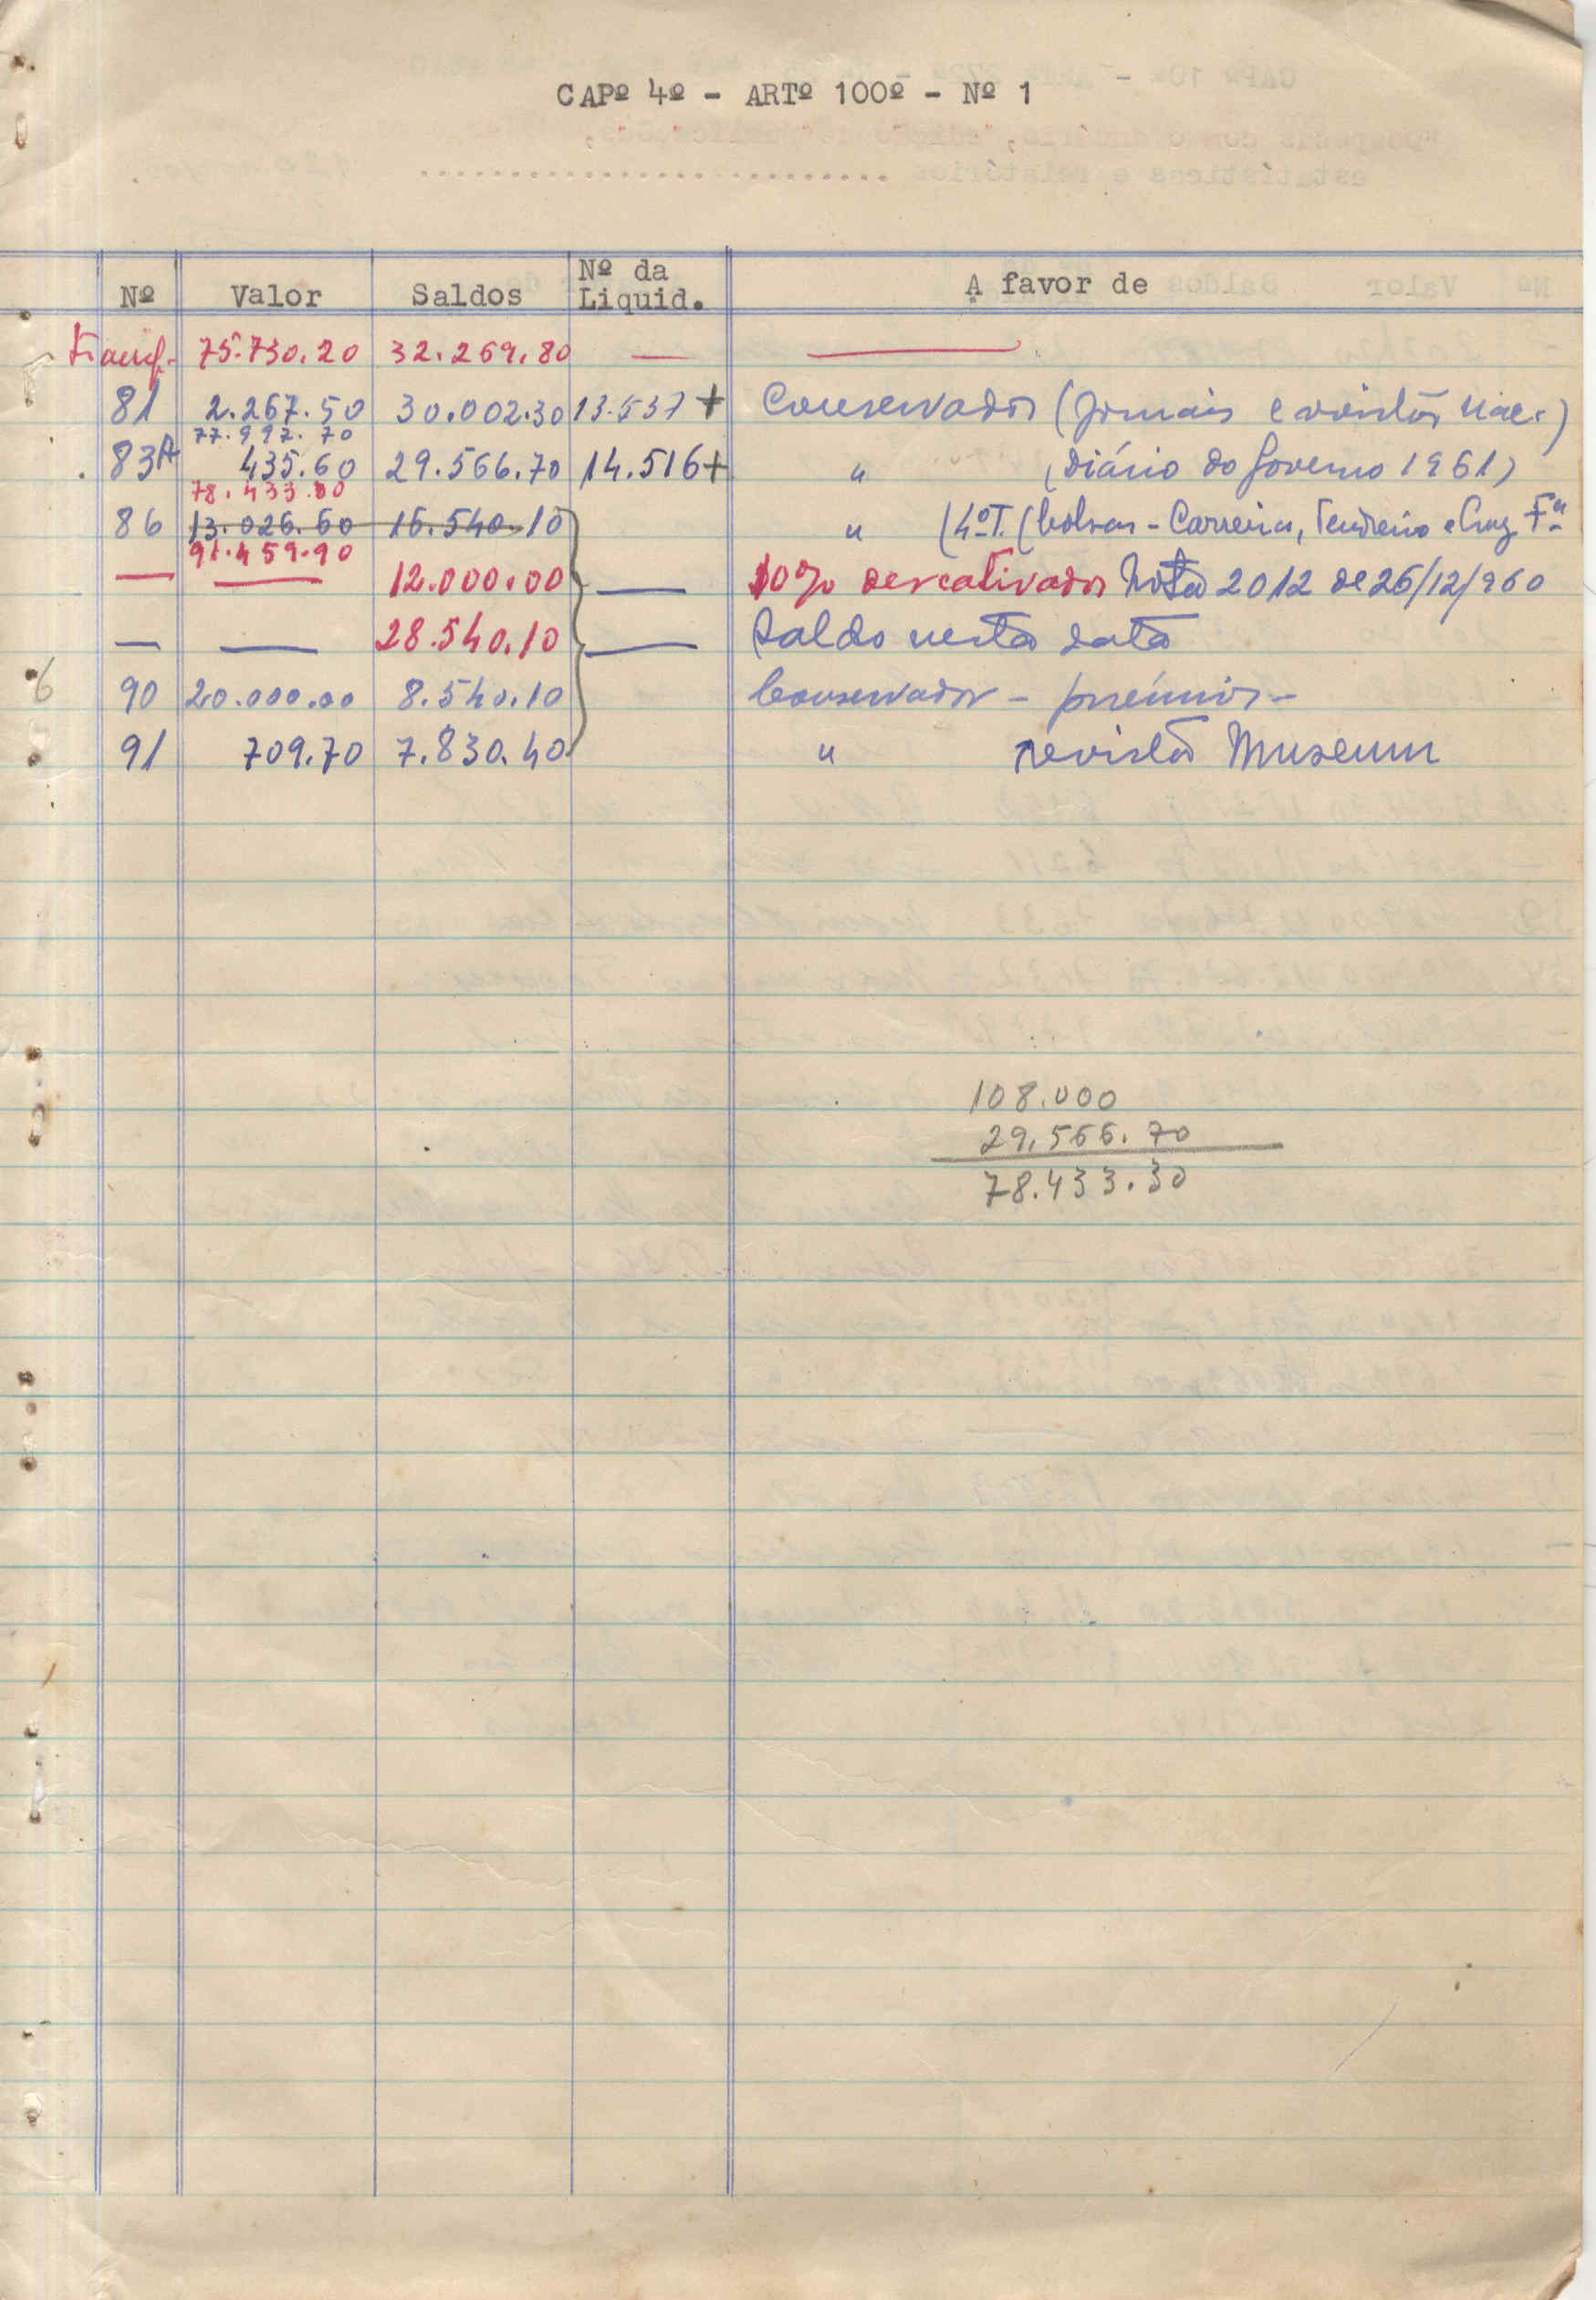 CAPº 4º - ARTº 100º - Nº 1
Nº Valor Saldos Nº da Liquid. A favor de
Transf. 75.730.20 32.269.80 — —
81 2.267.50 30.002.30 13.537 + Conservador (Jornais e revistas nac.)
77.997.70
83A 435.60 29.566.70 14.516 + " (Diário do Governo 1961)
78.433.30
86 13.026.60 16.540.10 " (4º T. (bolsas - Carreira, Tendeiro e Cruz Fª
91.459.90
— — 12.000.00 — 10% descativados Nota 2012 de 26/12/960
— — 28.540.10 — Saldo nesta data
6 90 20.000.00 8.540.10 Conservador - prémios -
91 709.70 7.830.40 " revista Museum
108.000
29.566.70
78.433.30